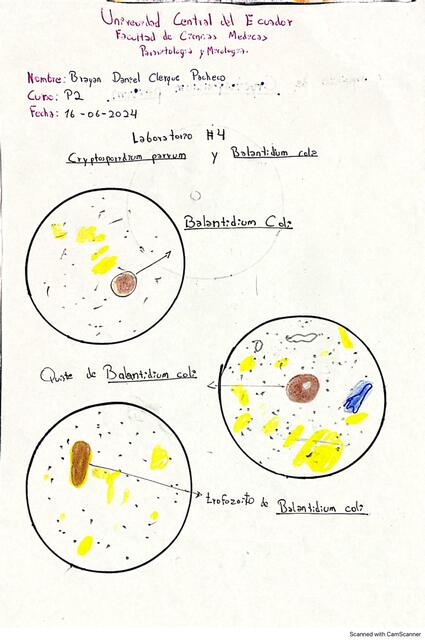 Universidad Central del Ecuador
Facultad de Ciencias Medicas
Parasitología y Micología.
Nombre: Brayan Daniel Clerque Pacheco
Curso: P2
Fecha: 16-06-2024
Laboratorio #4
Cryptosporidium parvum y Balantidium coli
Balantidium Coli
Quiste de Balantidium coli
trofozoito de Balantidium coli
Scanned with CamScanner